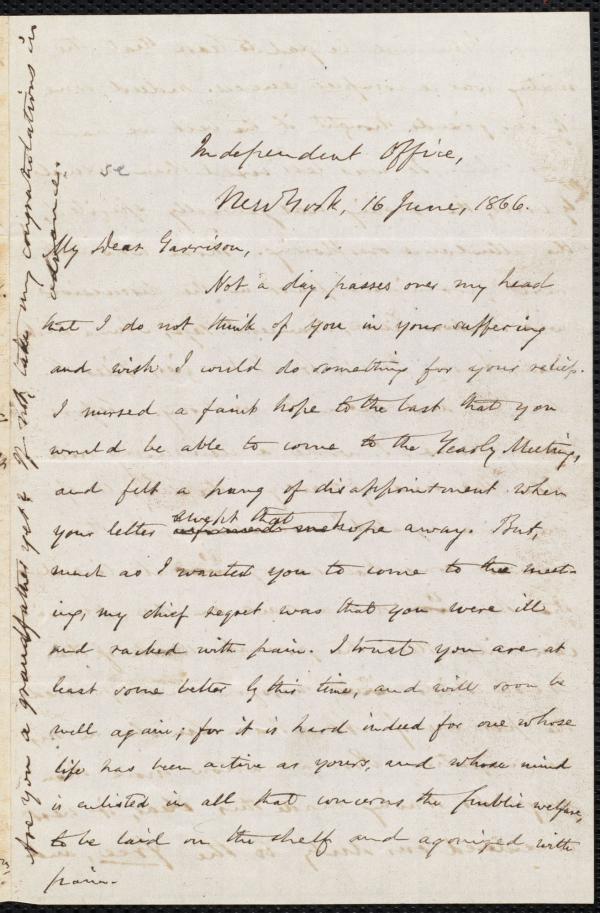 Independent Office,
New York, 16 June, 1866.
My Dear Garrison,
Not a day passes over my head
that I do not think of you in your suffering
and wish I could do something for your relief.
I nursed a faint hope to the last that you
would be able to come to the Yearly Meeting,
and felt a pang of disappointment when
swept that
your letter hope away. But,
much as I wanted you to come to the meet-
ing, my chief regret was that you were ill
and racked with pain. I trust you are at
least some better by this time, and will soon be
well again; for it is hard indeed for one whose
life has been active as yours, and whose mind
is enlisted in all that concerns the public welfare,
to be laid on the shelf and agonized with
pain.
Are you a grandfather yet? If not, take my congratulations in
advance.